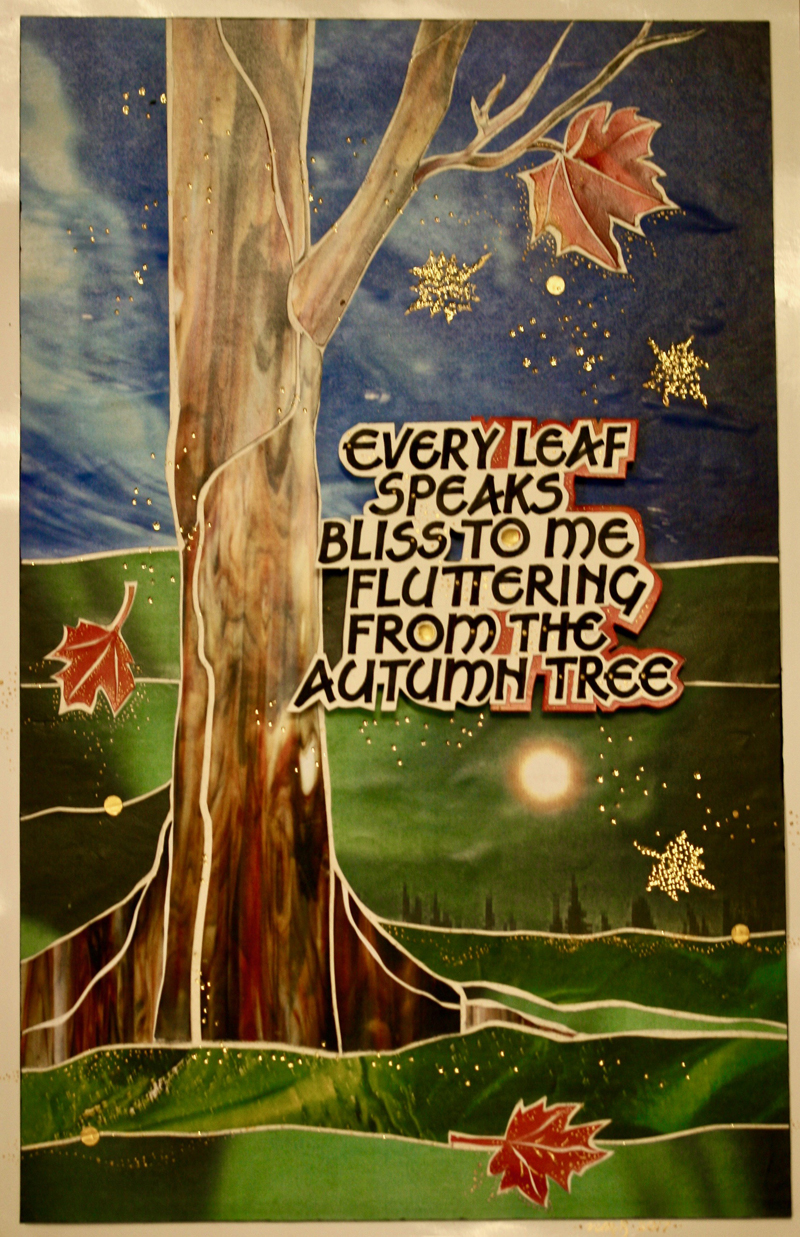 EVERY LEAF
SPEAKS
BLISS TO ME
FLUTTERING
FROM THE
AUTUMN TREE